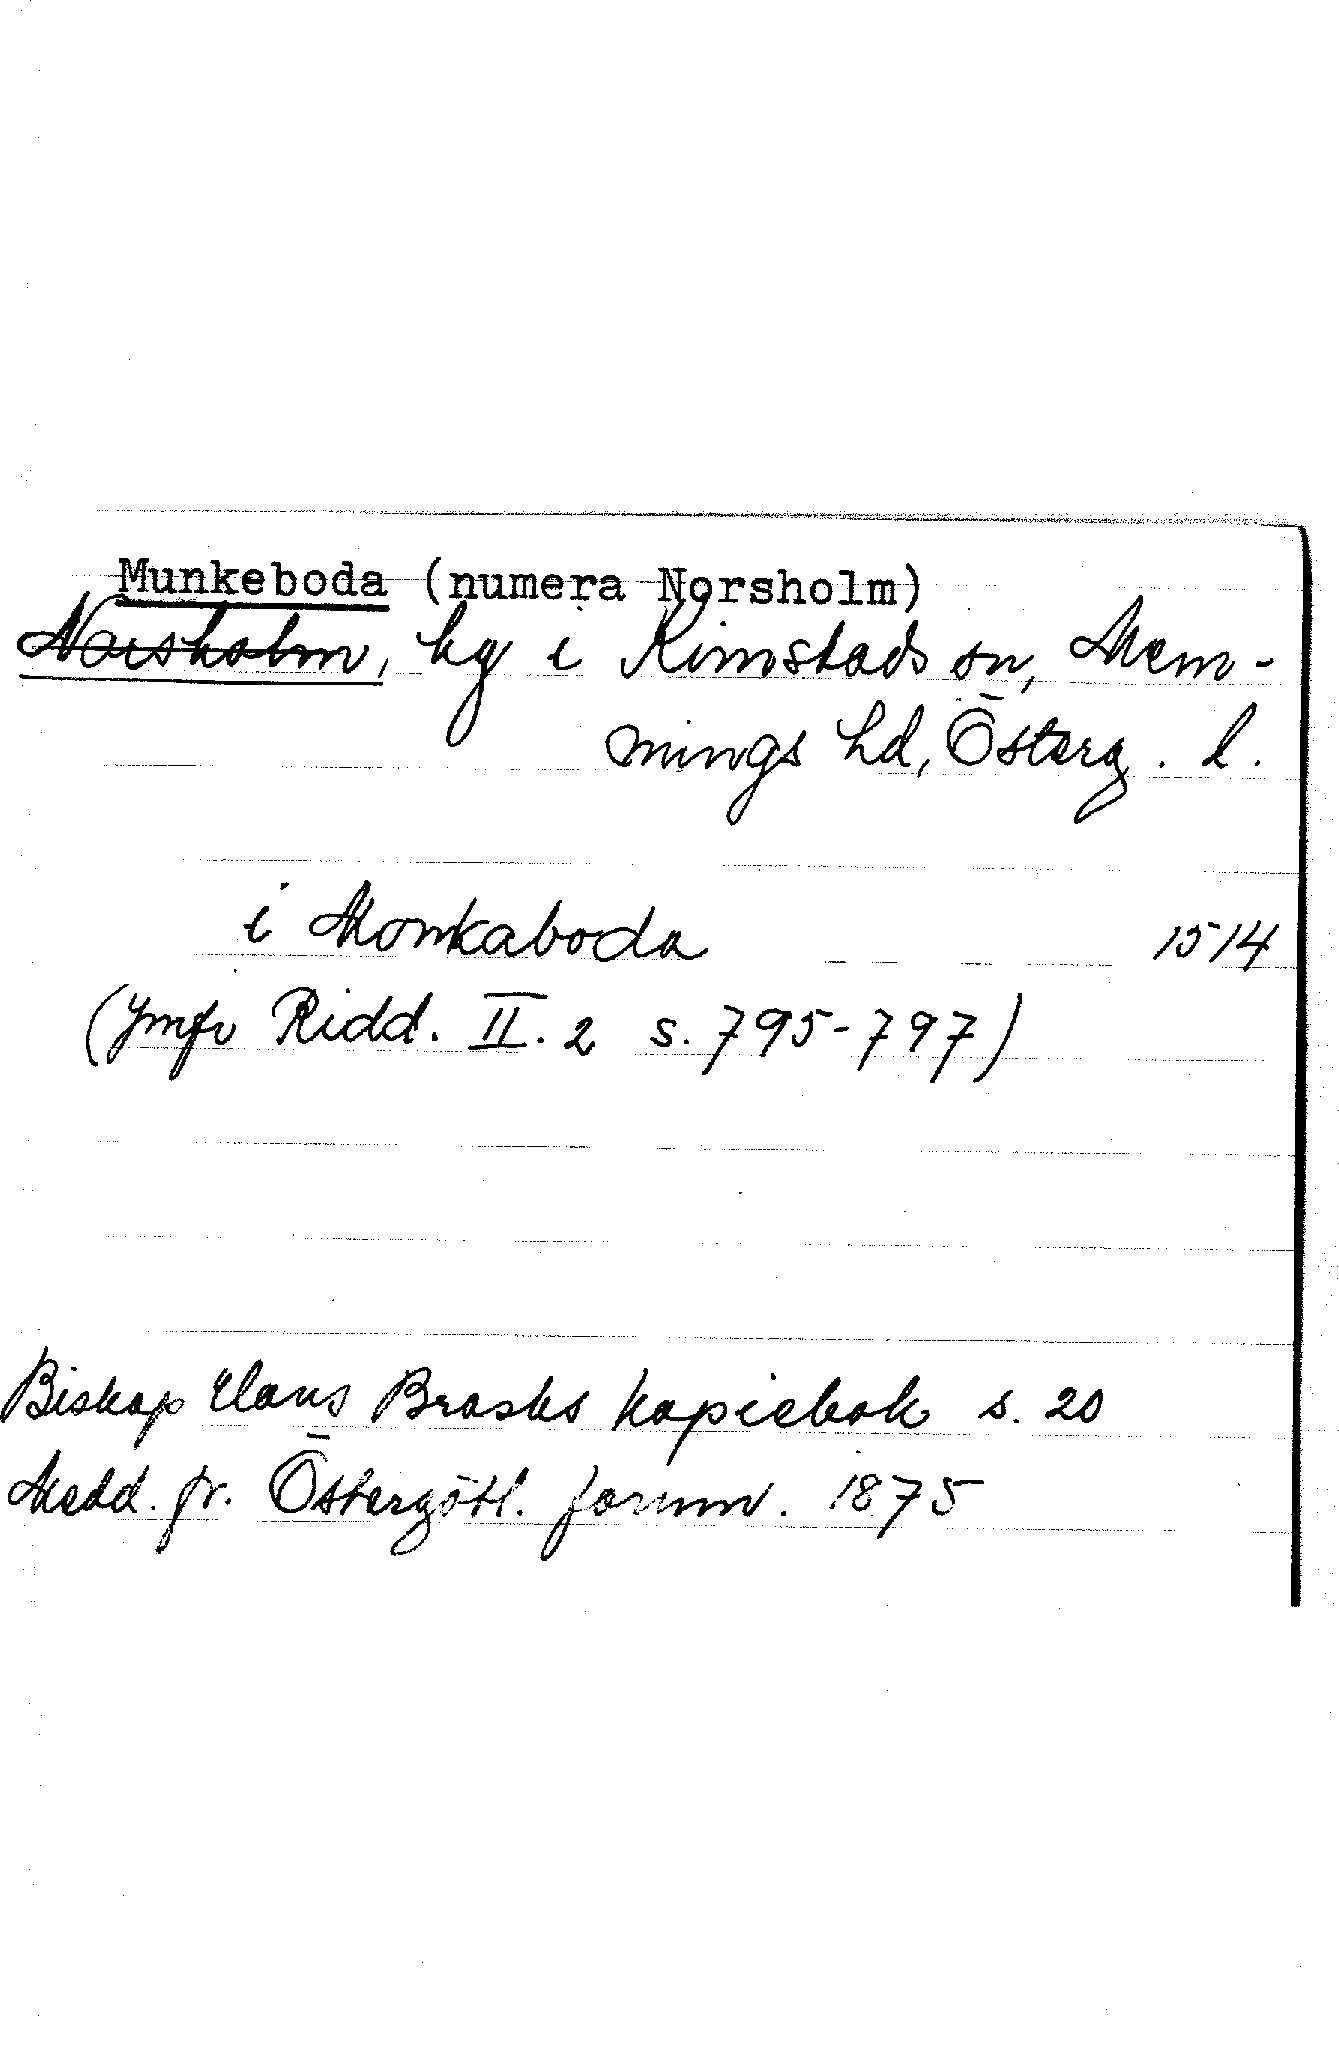 Munkeboda (numera Norsholm)
Norsholm, hg i Kimstads sn, Mem-
mings hd, Österg. l.
i Monkaboda 1514
(Jmfr Ridd. II. 2 s. 795-797)
Biskop Hans Brasks kopiebok s. 20
Medd. fr. Östergötl. fornm. 1875